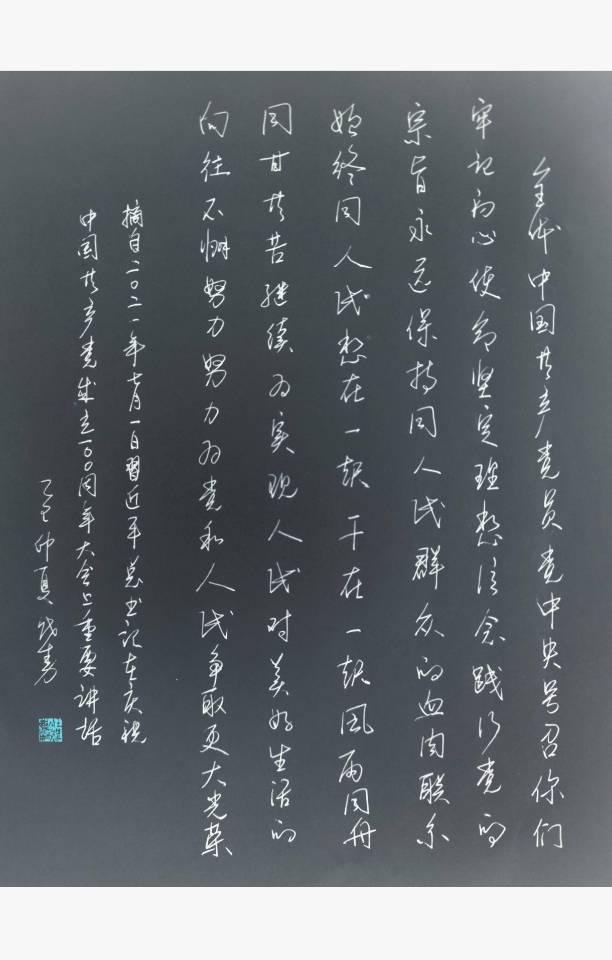 全体中国共产党员党中央号召你们
牢记初心使命坚定理想信念践行党的
宗旨永远保持同人民群众的血肉联系
始终同人民想在一起干在一起风雨同舟
同甘共苦继续为实现人民对美好生活的
向往不懈努力努力为党和人民争取更大光荣
摘自二〇二一年七月一日习近平总书记在庆祝
中国共产党成立一〇〇周年大会上重要讲话
乙巳仲夏